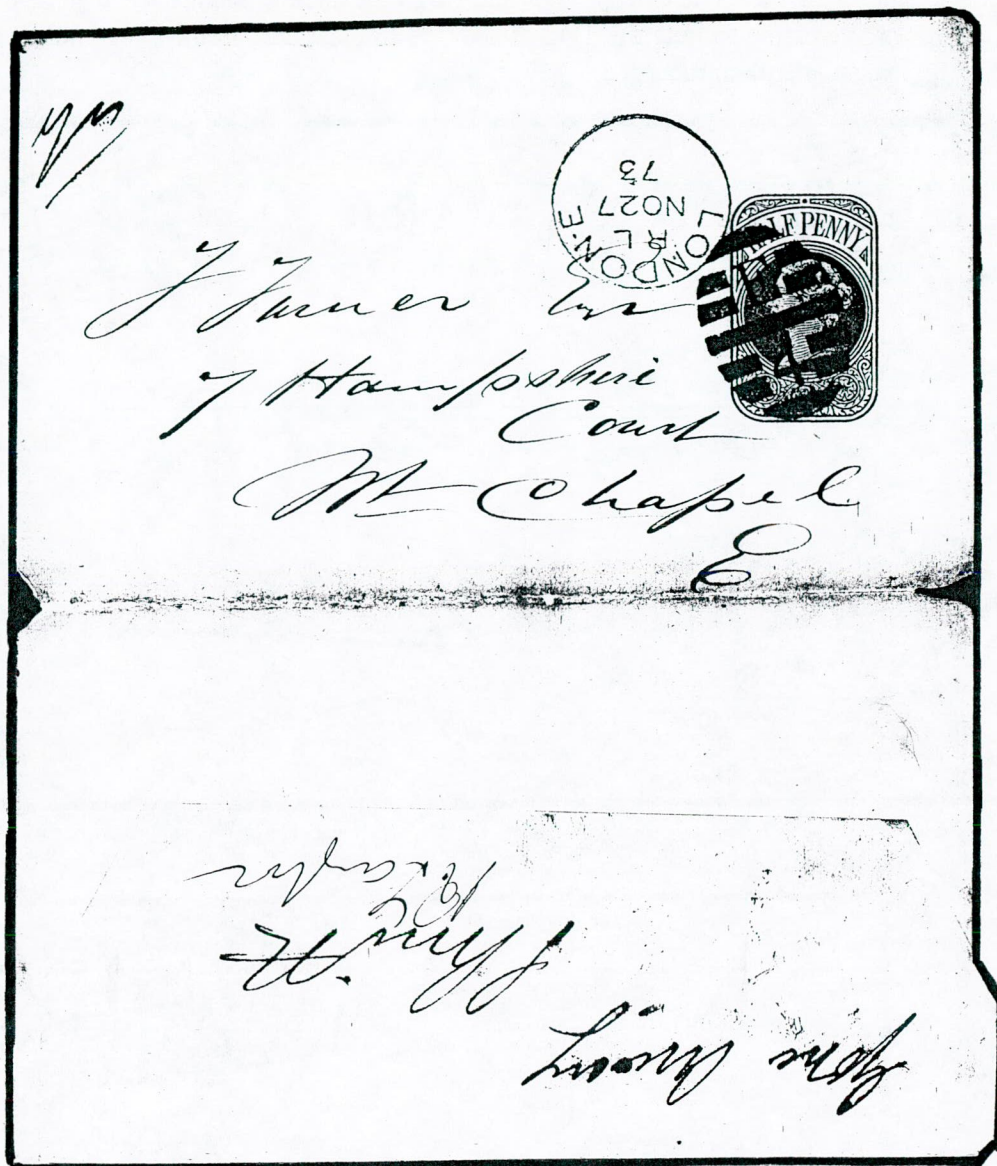 LONDON·E
R L
NO 27
73
HALF PENNY
J Turner Esq
7 Hampshire
Court
Wt Chapel
E
Gone Away
Smith